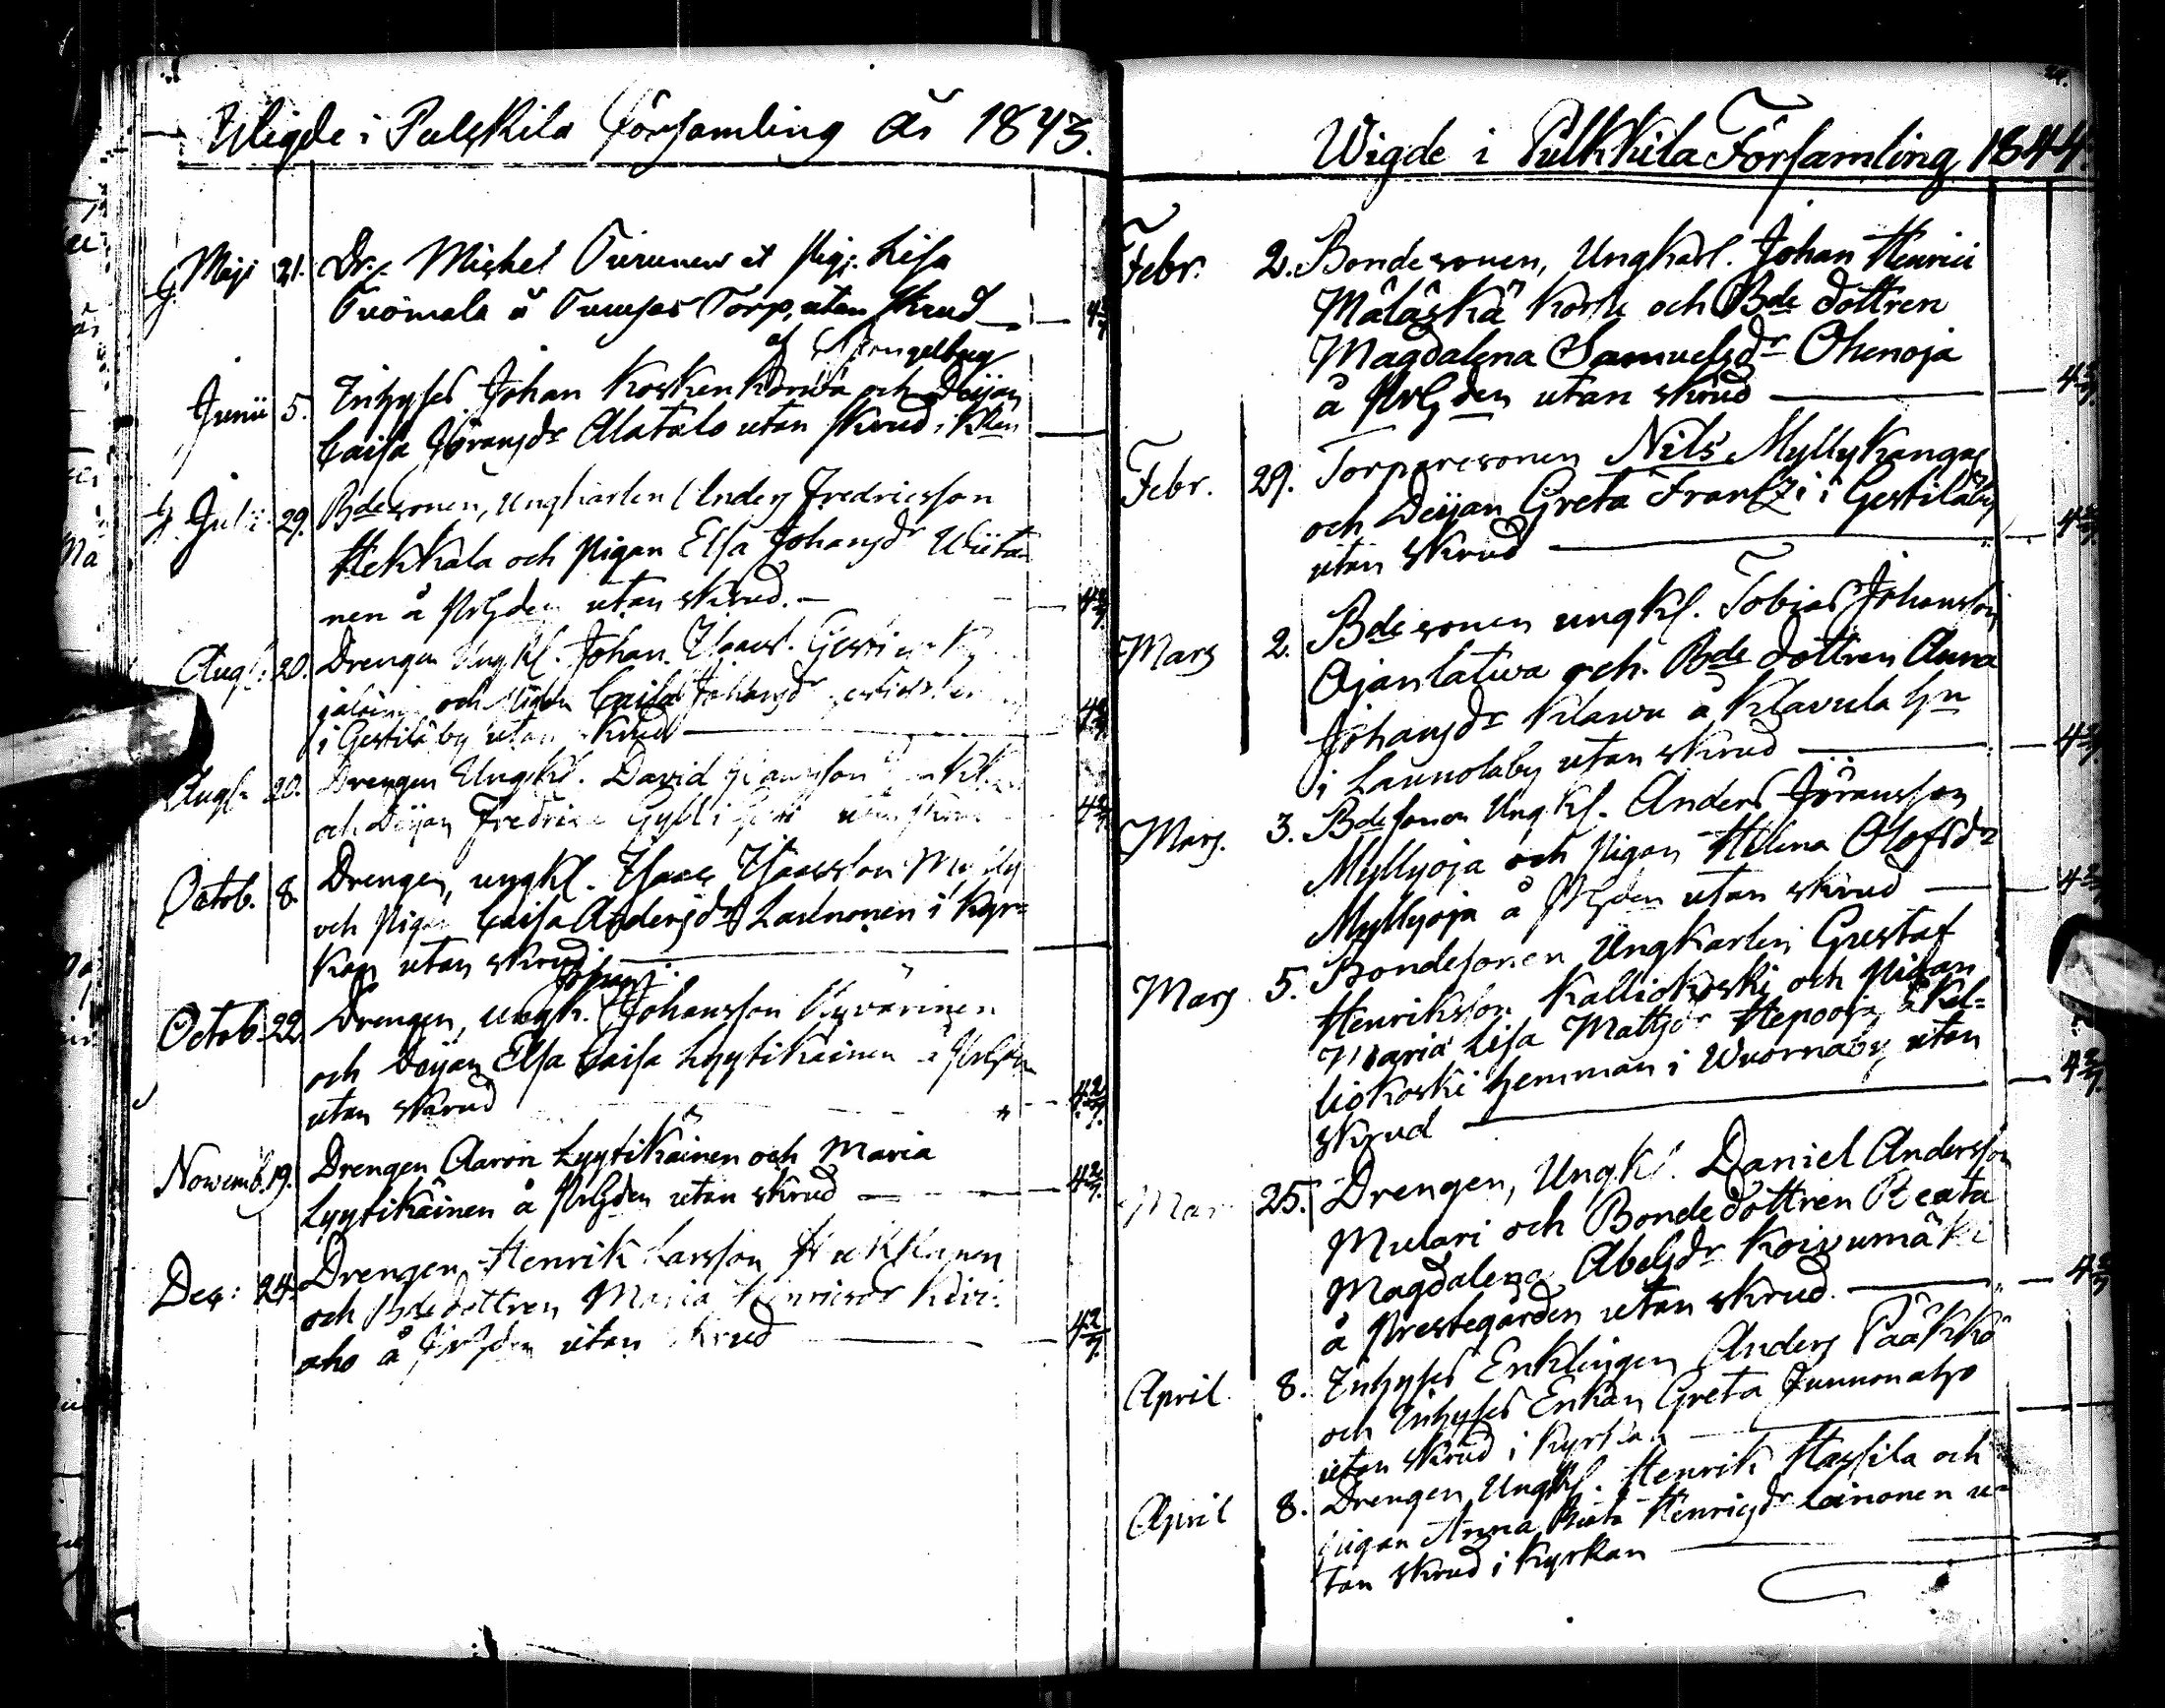 Wigde i Pulkkila Församling år 1843.
Maji 21. Dr. Michel Turunen et Pig. Lisa
Tuomala å Torp, utan skrud 42/7.
af Spongelberg
Junii 5. Inhyses Johan Koskenkorva och Deijan
Caisa Göransdr Alatalo utan skrud i Kkan
Julii 29. Bdesonen, Ungkarlen Anders Fredricsson
Hekkala och Pigan Elsa Johansdr Wiita
nen å Prgden utan skrud. 42/7.
Augs: 20. Drengen Ungkl. Johan Isacs.
och Pigan Caisa Johansdr
i Gestilä by utan skrud 42/7.
Augs: 20. Drengen Ungkl. David
och Deijan 42/7.
Octob. 8. Drengen, ungkl. Isaac Isacsson
och Pigan Caisa Andersdr Laulnonen i Kyr-
kan utan skrud.
Johan
Octob. 22. Drengen, ungk. Johansson Kyvärinen
och Deijan Elsa Caisa Lyytikäinen å Prgden
utan skrud 42/7.
Novemb. 19. Drengen Aaron Lyytikäinen och Maria
Lyytikäinen å Prgden utan skrud 42/7.
Dec: 24. Drengen Henrik Larsson
och Bdedottren Maria Henricsdr Kivi-
aho å Prgden utan skrud 42/7.
Wigde i Pulkkila Församling 1844.
Febr. 2. Bondesonen, Ungkarl. Johan Henrici
Mäläskä Korki och Bde dottren
Magdalena Samuelsdr Ohenoja
å Prgden utan skrud 42/7.
Febr. 29. Torparesonen Nils Myllykangas
och Deijan Greta Frantzi i Gestiläby
utan skrud 42/7.
Mars 2. Bdesonen ungkl. Tobias Johansson
Ojanlatwa och Bde dottren Anna
Johansdr Klawu å Klavula hn
i Launolaby utan skrud 42/7.
Mars. 3. Bdesonen Ungkl. Anders Jöransson
Myllyoja och Pigan Helena Olofsdr
Myllyoja å Prgden utan skrud 42/7.
Mars 5. Bondesonen Ungkarlen Gustaf
Henriksson Kalliokoski och Pigan
Maria Lisa Mattsdr Hepooja å Kal-
liokoski hemman i Wuornaby utan
skrud 42/7.
Mar 25. Drengen, Ungkl. Daniel Andersson
Mulari och Bondedottren Beata
Magdalena Abelsdr Koivumäki
å Prestegården utan skrud. 42/7.
April 8. Inhyses Enklingen Anders Pääkkö
och Inhyses Enkan Greta Junnonaho
utan skrud i Kyrkan
April 8. Drengen, Ungkl. Henrik Hassila och
Pigan Anna Beata Henricsdr Leinonen u-
tan skrud i Kyrkan